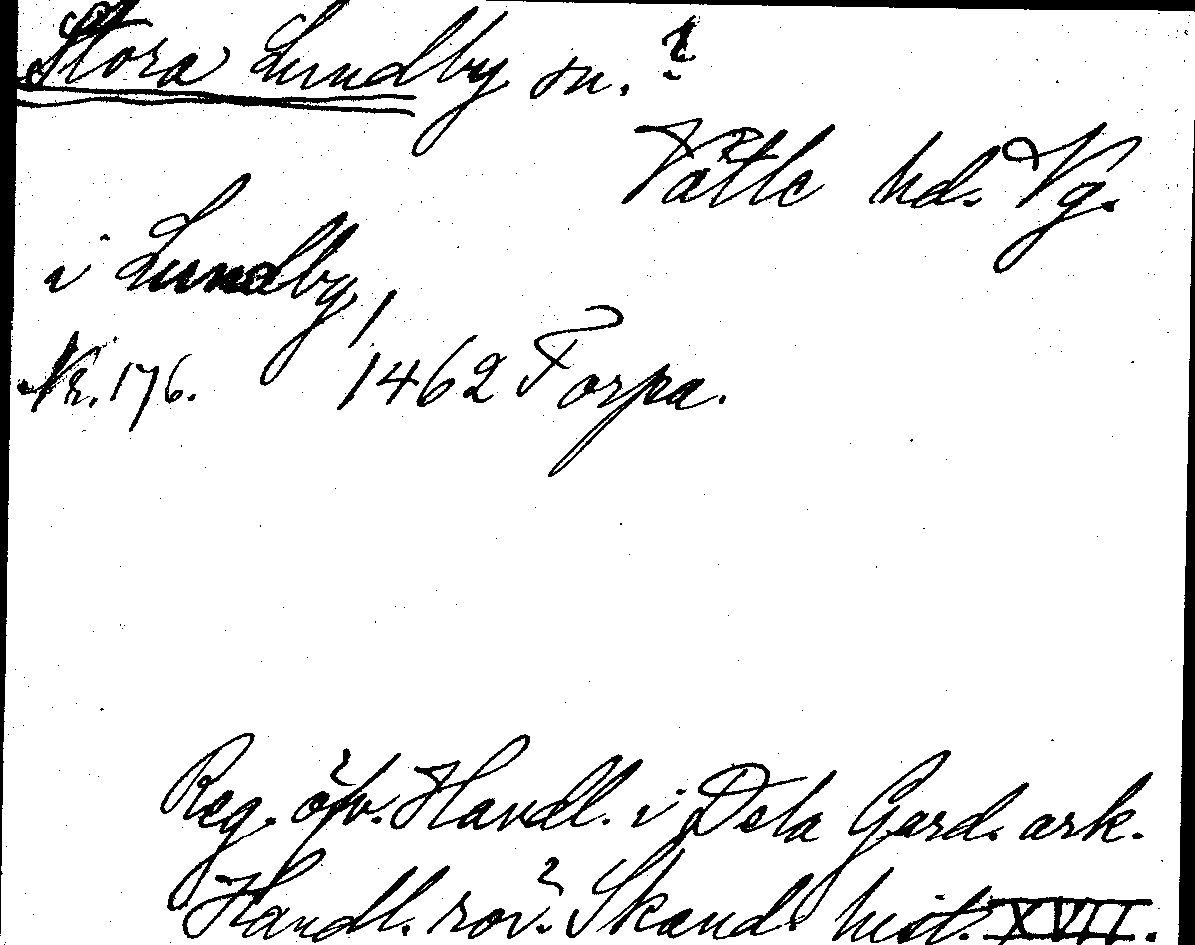 Stora Lundby sn. ?
Vättle hd. Vg.
i Lundby,
Nr. 176. 1462 Torpa.
Reg. öfv. Handl. i Dela Gard. ark.
Handl. rör. Skand. hist. XVII.